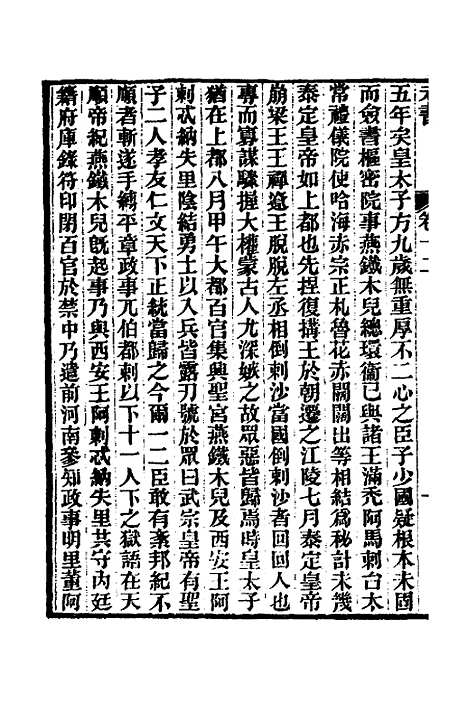 五年矣皇太子方九歲無重厚不二心之臣子少國疑根本未固
而僉書樞密院事燕鐵木兒總環衞已與諸王滿禿阿馬剌台太
常禮儀院使哈海赤宗正札魯花赤闊闊出等相結爲秘計未幾
泰定皇帝如上都也先捏復搆王於朝遷之江陵七月泰定皇帝
崩梁王王禪遼王脫脫左丞相倒剌沙當國倒剌沙者回回人也
專而寡謀驟握大權蒙古人尤深嫉之故眾惡皆歸焉時皇太子
猶在上都八月甲午大都百官集興聖宮燕鐵木兒及西安王阿
剌忒納失里陰結勇士以入兵皆露刀號於眾曰武宗皇帝有聖
子二人孝友仁文天下正統當歸之今爾一二臣敢有紊邦紀不
順者斬遂手縛平章政事兀伯都剌以下十一人下之獄語在天
順帝紀燕鐵木兒旣起事乃與西安王阿剌忒納失里共守內廷
籍府庫錄符印閉百官於禁中乃遣前河南參知政事明里董阿
卷十二